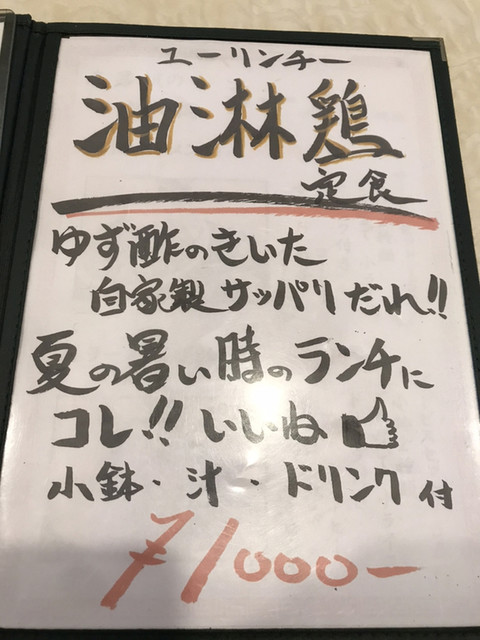 ユーリンチー
油淋鶏
定食
ゆず酢のきいた
自家製サッパリだれ!!
夏の暑い時のランチに
コレ!!いいね
小鉢・汁・ドリンク付
¥1000-